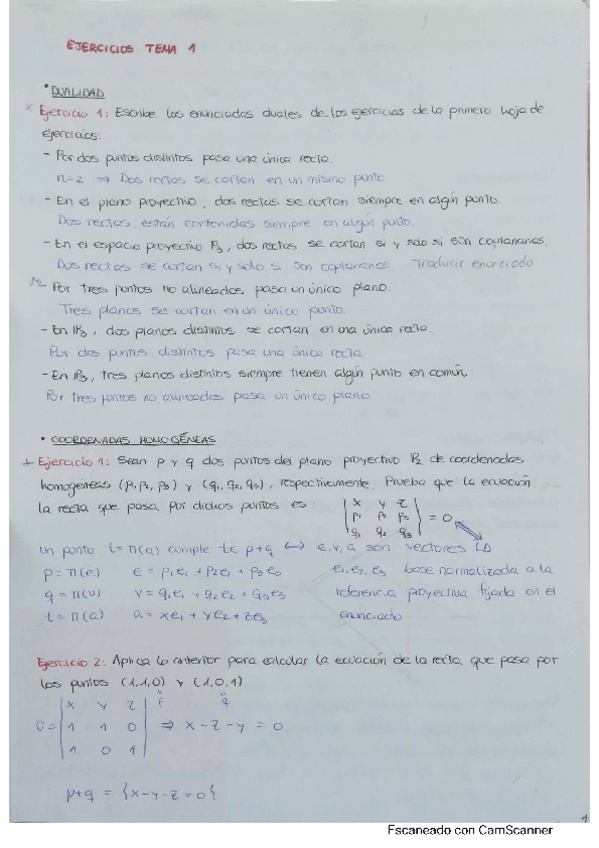 EJERCICIOS TEMA 1
• DUALIDAD
Ejercicio 1: Escribe los enunciados duales de los ejercicios de la primera hoja de
ejercicios:
- Por dos puntos distintos pasa una única recta.
n=2 ⇒ Dos rectas se cortan en un mismo punto
- En el plano proyectivo, dos rectas se cortan siempre en algún punto.
Dos rectas están contenidas siempre en algún punto.
- En el espacio proyectivo P₃, dos rectas se cortan si y solo si son coplanarias.
Dos rectas se cortan si y solo si son coplanarias. Traducir enunciado
- Por tres puntos no alineados pasa un único plano.
Tres planos se cortan en un único punto.
- En P₃, dos planos distintos se cortan en una única recta.
Por dos puntos distintos pasa una única recta.
- En P₃, tres planos distintos siempre tienen algún punto en común
Por tres puntos no alineados pasa un único plano.
• COORDENADAS HOMOGÉNEAS
+ Ejercicio 1: Sean p y q dos puntos del plano proyectivo P₂ de coordenadas
homogéneas (p₁, p₂, p₃) y (q₁, q₂, q₃), respectivamente. Prueba que la ecuación
la recta que pasa por dichos puntos es:
| x y z |
| p₁ p₂ p₃ | = 0
| q₁ q₂ q₃ |
un punto t=π(a) cumple t∈ p+q ↔ e,v,a son vectores LD
p = π(e) e = p₁e₁ + p₂e₂ + p₃e₃ e₁, e₂, e₃ base normalizada a la
q = π(v) v = q₁e₁ + q₂e₂ + q₃e₃ referencia proyectiva fijada en el
t = π(a) a = xe₁ + ye₂ + ze₃ enunciado
Ejercicio 2: Aplica lo anterior para calcular la ecuación de la recta que pasa por
los puntos (1,1,0) y (1,0,1)
p q
| x y z |
0 = | 1 1 0 | ⇒ x-z-y = 0
| 1 0 1 |
p+q = {x-y-z=0}
1
Escaneado con CamScanner